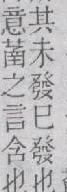 其未發巳發也
意菡之言含也